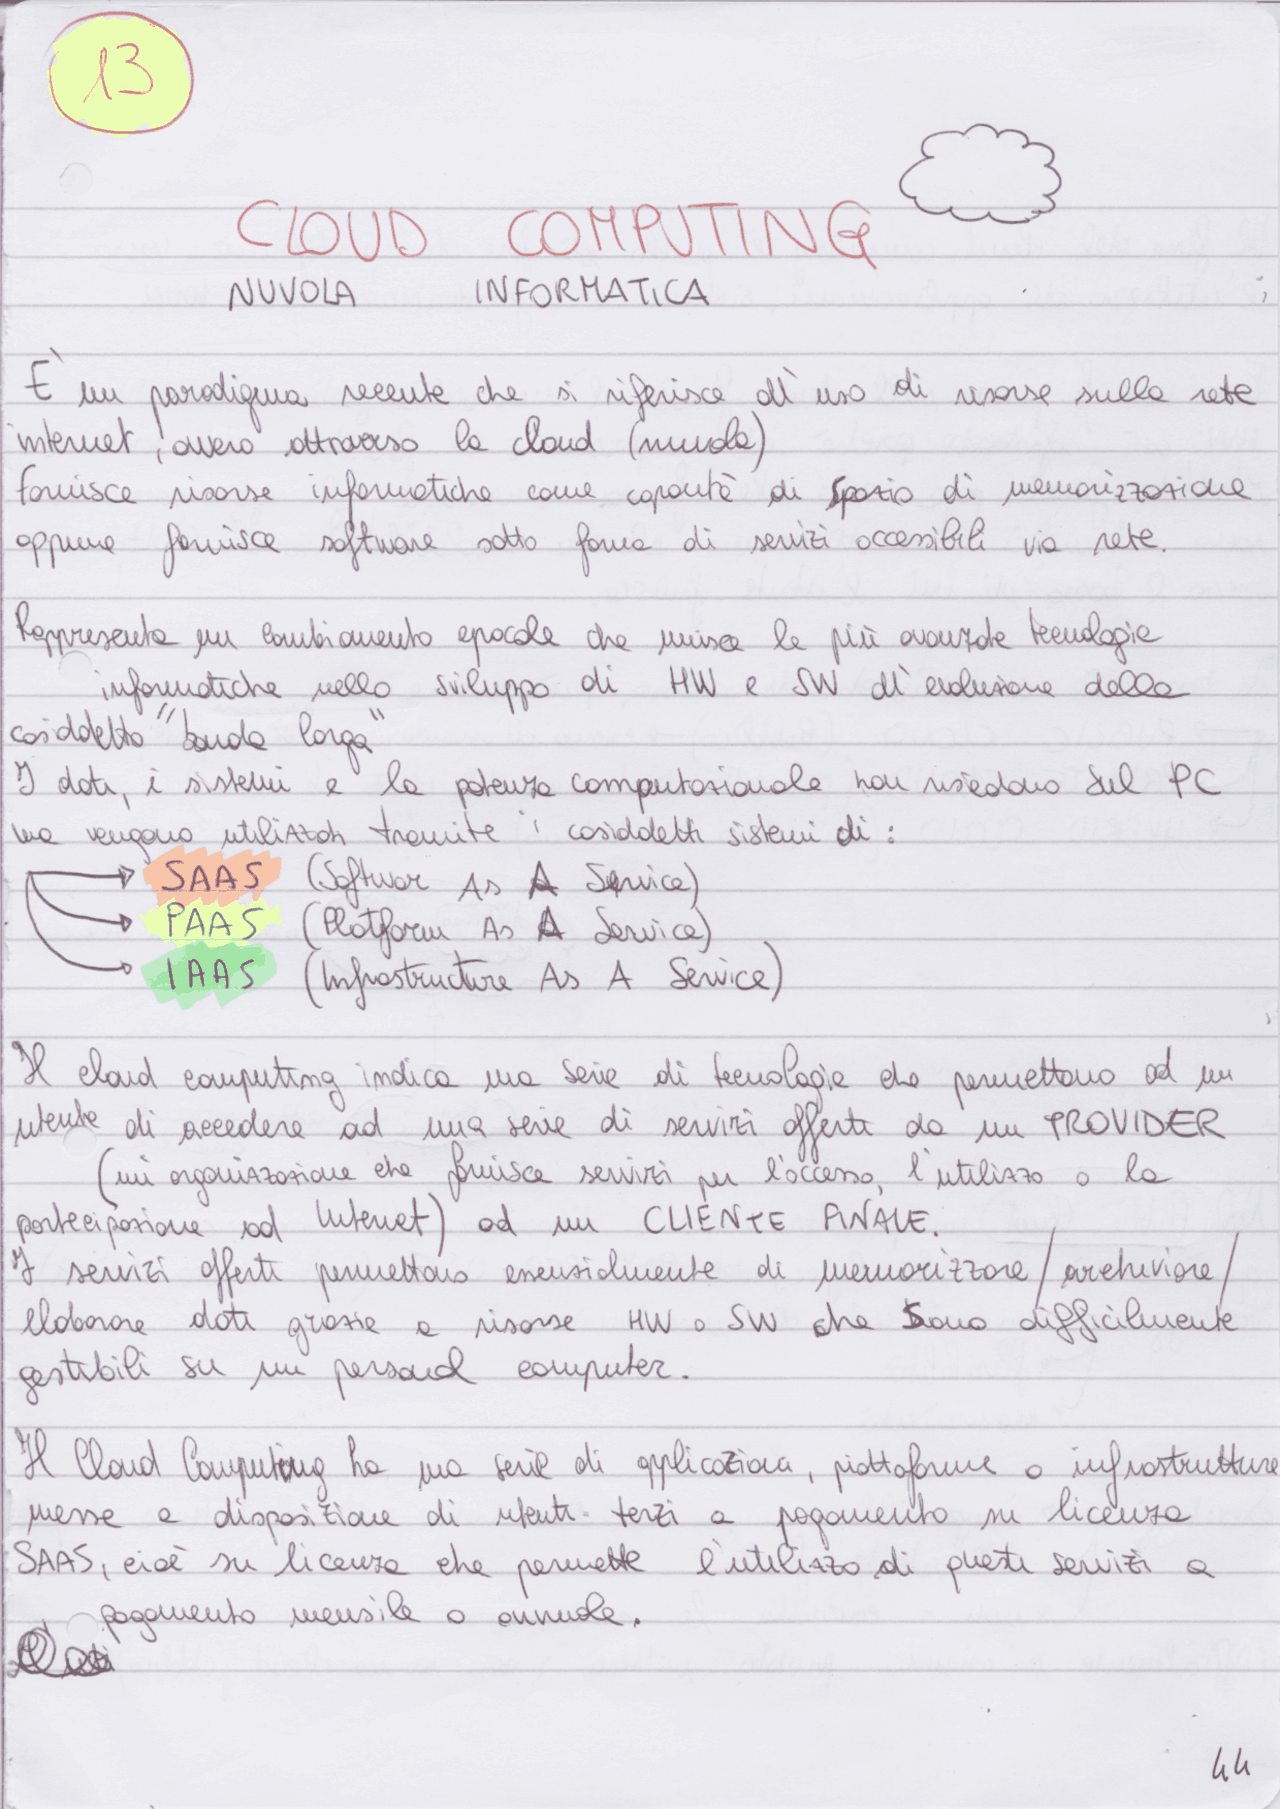 13
CLOUD COMPUTING
NUVOLA INFORMATICA
È un paradigma recente che si riferisce all'uso di risorse sulla rete
internet, ovvero attraverso la cloud (nuvola)
fornisce risorse informatiche come capacità di spazio di memorizzazione
oppure fornisce software sotto forma di servizi accessibili via rete.
Rappresenta un cambiamento epocale che unisce le più avanzate tecnologie
informatiche nello sviluppo di HW e SW all'evoluzione della
cosiddetta "banda larga"
I dati, i sistemi e la potenza computazionale non risiedono sul PC
ma vengono utilizzati tramite i cosiddetti sistemi di:
SAAS (Softwar As A Service)
PAAS (Platform As A Service)
IAAS (Infrastructure As A Service)
Il cloud computing indica una serie di tecnologie che permettono ad un
utente di accedere ad una serie di servizi offerti da un PROVIDER
(un'organizzazione che fornisce servizi per l'accesso, l'utilizzo o la
partecipazione ad Internet) ad un CLIENTE FINALE.
I servizi offerti permettono essenzialmente di memorizzare/archiviare/
elaborare dati grazie a risorse HW o SW che sono difficilmente
gestibili su un personal computer.
Il Cloud Computing ha una serie di applicazioni, piattaforme o infrastrutture
messe a disposizione di utenti terzi a pagamento su licenza
SAAS, cioè su licenza che permette l'utilizzo di questi servizi a
pagamento mensile o annuale.
44